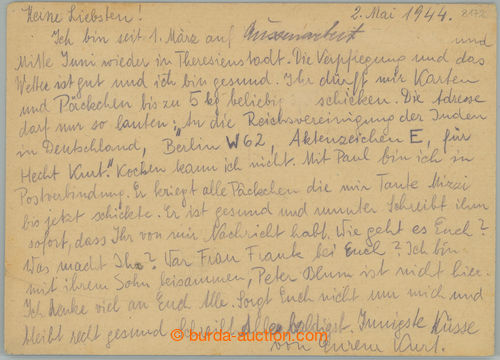 Meine Liebsten! 2. Mai 1944.
Ich bin seit 1. März auf Aussenarbeit und
Mitte Juni wieder in Theresienstadt. Die Verpflegung und das
Wetter ist gut und ich bin gesund. Ihr dürft mir Karten
und Päckchen bis zu 5 kg beliebig schicken. Die Adresse
darf nur so lauten: „An die Reichsvereinigung der Juden
in Deutschland, Berlin W 62, Aktenzeichen E, für
Hecht Kurt." Kochen kann ich nicht. Mit Paul bin ich in
Postverbindung. Er kriegt alle Päckchen die mir Tante Mizzi
bis jetzt schickte. Er ist gesund und munter. Schreibt ihm
sofort, dass Ihr von mir Nachricht habt. Wie geht es Euch?
Was macht Ihr? War Frau Frank bei Euch? Ich bin
mit ihrem Sohn beisammen, Peter Blum ist nicht hier.
Ich denke viel an Euch Alle. Sorgt Euch nicht um mich und
bleibt recht gesund. Schreibt Alle baldigst. Innigste Küsse
von Eurem Kurt.
burda-auction.com